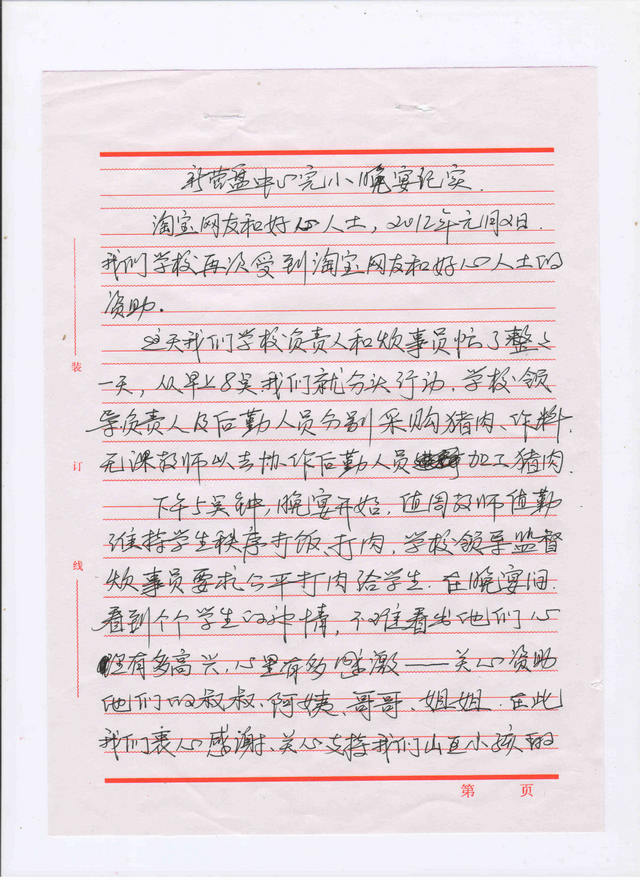 新营盘中心完小晚宴纪实.
淘宝网友和好心人士,2012年元月2日.
我们学校再次受到淘宝网友和好心人士的
资助.
这天我们学校负责人和炊事员忙了整整
一天,从早上8点我们就分头行动.学校领
导负责人及后勤人员分别采购猪肉、作料.
无课教师以去协作后勤人员加工猪肉.
下午5点钟,晚宴开始,值周教师值勤
维持学生秩序打饭、打肉,学校领导监督
炊事员要求公平打肉给学生.在晚宴间
看到个个学生的神情,不难看出他们心
里有多高兴,心里有多感激——关心资助
他们的叔叔、阿姨、哥哥、姐姐.在此
我们衷心感谢、关心支持我们山区小孩的
装
订
线
第 页